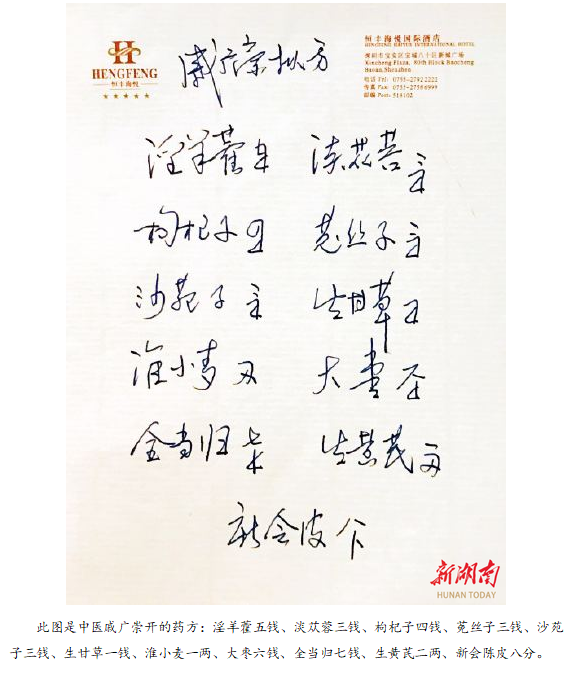 HENGFENG
恒丰海悦
恒丰海悦国际酒店
HENGFENG HAIYUE INTERNATIONAL HOTEL
深圳市宝安区宝城八十区新城广场
Xincheng Plaza, 80th Block Baocheng
Baoan, Shenzhen
电话 Tel: 0755-2792 2222
传真 Fax: 0755-2756 6999
邮编 Post: 518102
戚广崇拟方
淫羊藿 淡苁蓉
枸杞子 菟丝子
沙苑子 生甘草
淮小麦 大枣
全当归 生黄芪
新会皮
新湖南
HUNAN TODAY
此图是中医戚广崇开的药方：淫羊藿五钱、淡苁蓉三钱、枸杞子四钱、菟丝子三钱、沙苑
子三钱、生甘草一钱、淮小麦一两、大枣六钱、全当归七钱、生黄芪二两、新会陈皮八分。